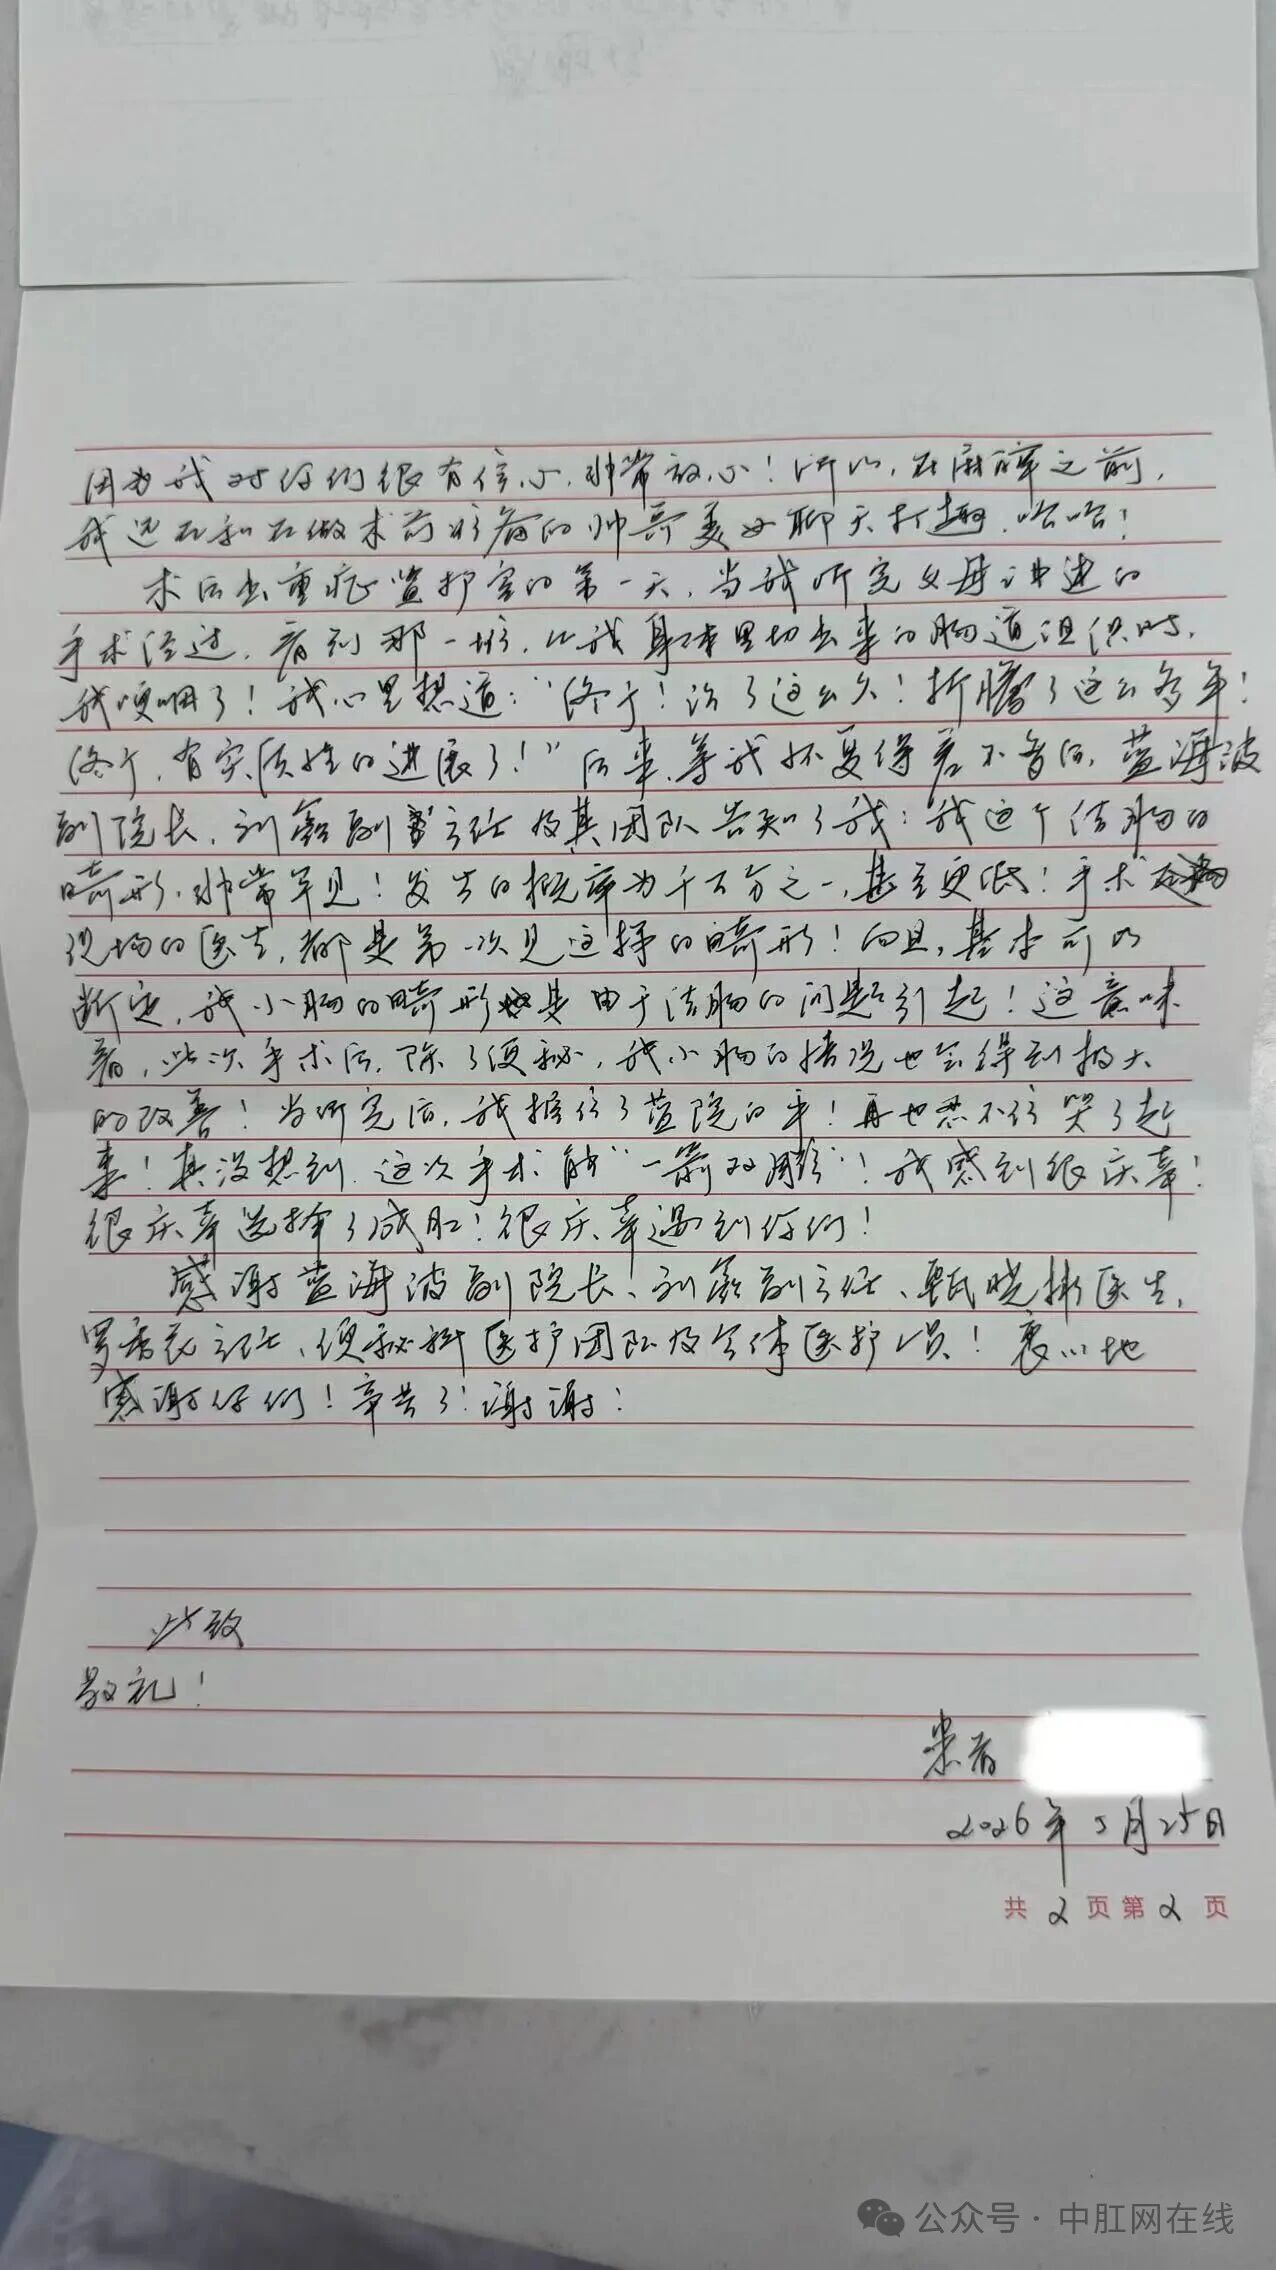 因为我对你们很有信心，非常放心！所以，在麻醉之前，
我还在和在做术前准备的帅哥美女聊天打趣，哈哈！
术后出重症监护室的第一天，当我听完父母讲述的
手术经过，看到那一坨，从我身体里切出来的肠道组织时，
我哽咽了！我心里想道：“终于！治了这么久！折腾了这么多年！
终于，有实质性的进展了！”后来，等我恢复得差不多后，蓝海波
副院长，刘 副主任及其团队告知了我：我这个结肠的
畸形，非常罕见！发生的概率为千万分之一，甚至更低！手术
现场的医生，都是第一次见这样的畸形！而且，基本可以
断定，我小肠的畸形也是由于结肠的问题引起！这意味
着，此次手术后，除了便秘，我小肠的情况也会得到极大
的改善！当听完后，我握住了蓝院的手！再也忍不住哭了起
来！真没想到，这次手术能“一箭双雕”！我感到很庆幸！
很庆幸选择了成肛！很庆幸遇到你们！
感谢蓝海波副院长、刘 副主任、甄晓彬医生，
罗 主任、便秘科医护团队及全体医护人员！衷心地
感谢你们！辛苦了！谢谢！
此致
敬礼！
患者
2026年5月25日
共2页第2页
公众号·中肛网在线